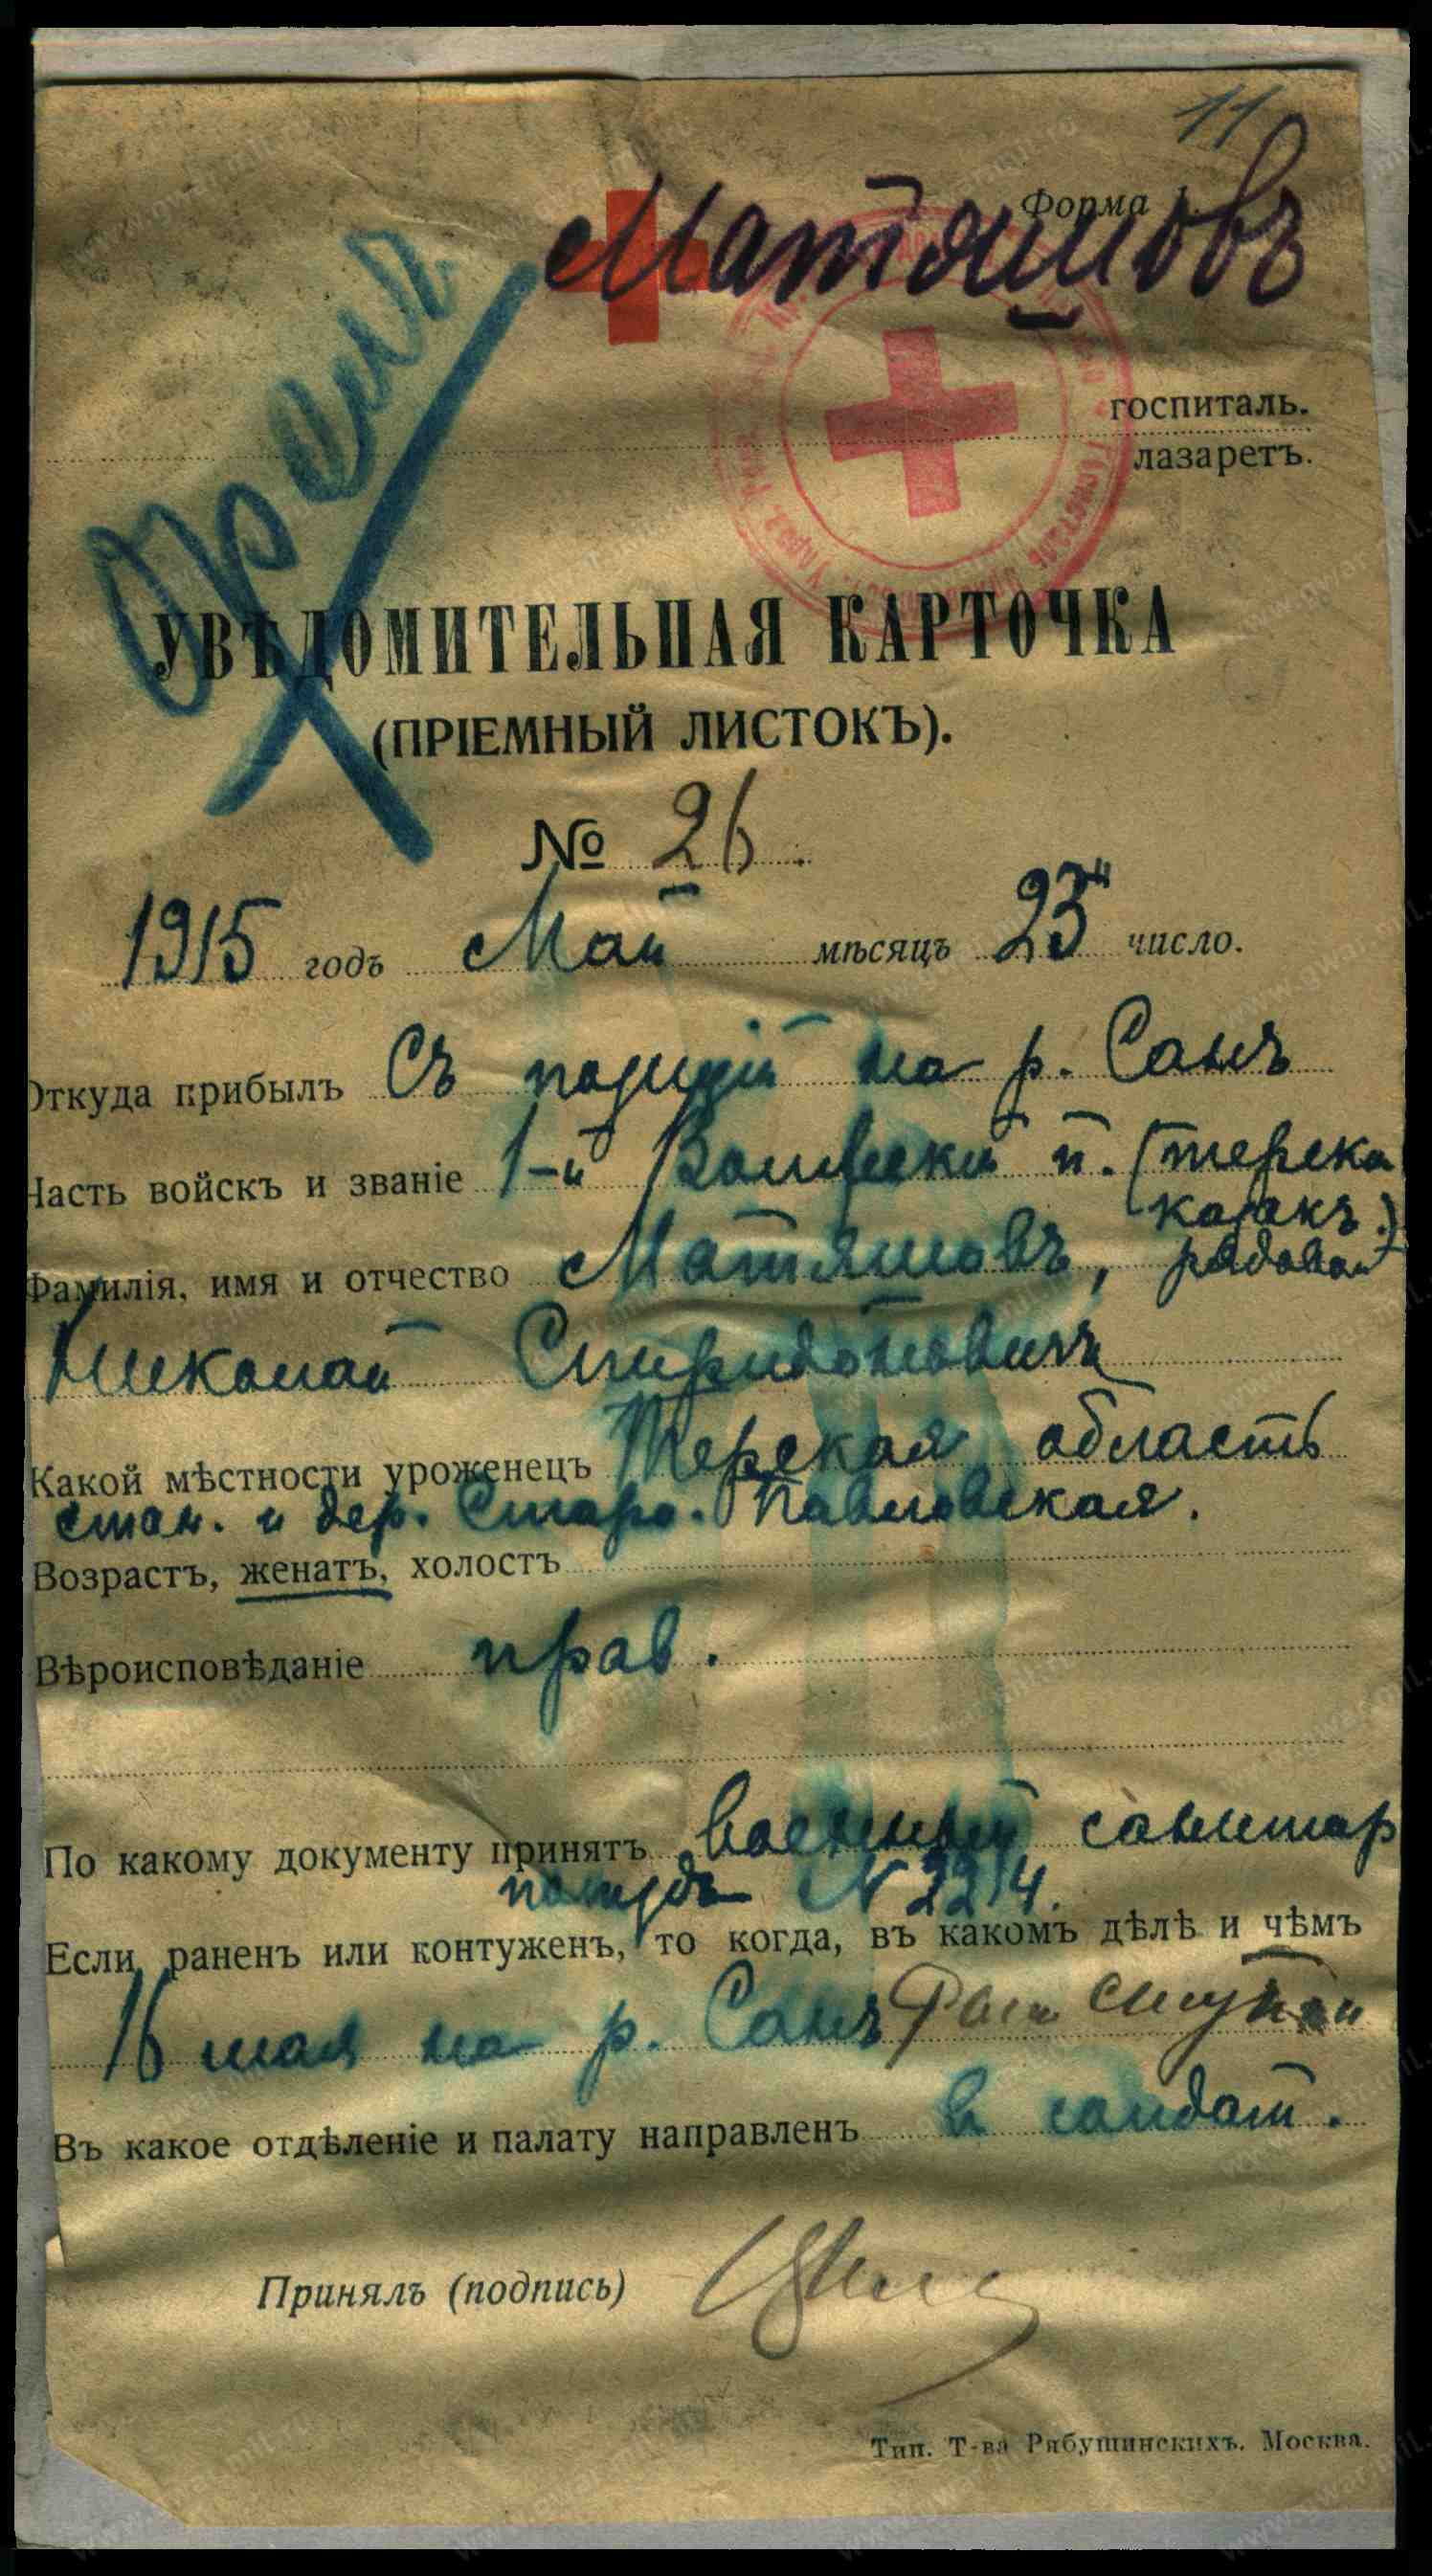 11
Форма 1.
Матяшовъ
госпиталь.
лазаретъ.
УВѢДОМИТЕЛЬНАЯ КАРТОЧКА
(ПРІЕМНЫЙ ЛИСТОКЪ).
№ 26.
1915 годъ Май мѣсяцъ 23 число.
Откуда прибылъ Съ позицій на р. Санъ
Часть войскъ и званіе 1-й Волгскій п. (терск.
казакъ.)
Фамилія, имя и отчество Матяшовъ, рядовой
Николай Спиридоновичъ
Какой мѣстности уроженецъ Терская область
стан. и дер. Старо-Павловская.
Возрастъ, женатъ, холостъ
Вѣроисповѣданіе прав.
По какому документу принятъ военный санитар
поѣздъ № 2214.
Если раненъ или контуженъ, то когда, въ какомъ дѣлѣ и чѣмъ
16 мая на р. Санъ
Въ какое отдѣленіе и палату направленъ в солдат.
Принялъ (подпись)
Тип. Т-ва Рябушинскихъ. Москва.